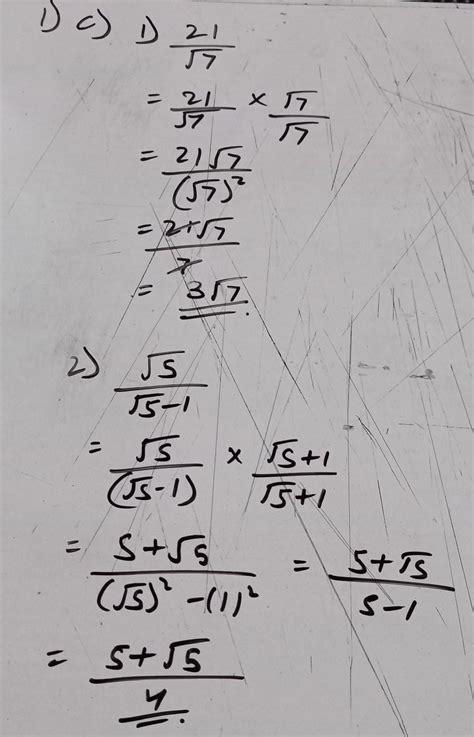 1) c) 1) 21/√7
= 21/√7 × √7/√7
= 21√7/(√7)²
= 21√7/7
= 3√7.
2) √5/√5-1
= √5/(√5-1) × √5+1/√5+1
= 5+√5/(√5)²-(1)² = 5+√5/5-1
= 5+√5/4.